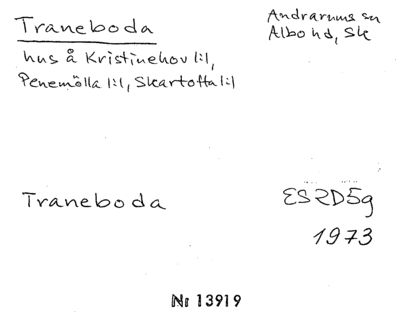 Traneboda
Andrarums sn
Albo hd, Sk
hus å Kristinehov 1:1,
Penemölla 1:1, Skartofta 1:1
Traneboda
ES 2D5g
1973
Nr 13919